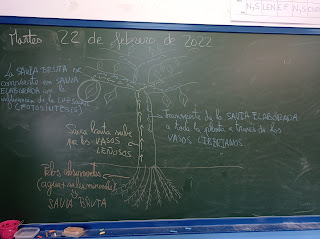 Martes 22 de febrero de 2022
LA SAVIA BRUTA se
convierte en SAVIA
ELABORADA con la
influencia de la LUZ SOLAR
(FOTOSÍNTESIS)
transporte de la SAVIA ELABORADA
a toda la planta a través de los
VASOS LIBERIANOS
Savia bruta sube
por los VASOS
LEÑOSOS
Pelos absorbentes
(agua+sales minerales)
SAVIA BRUTA